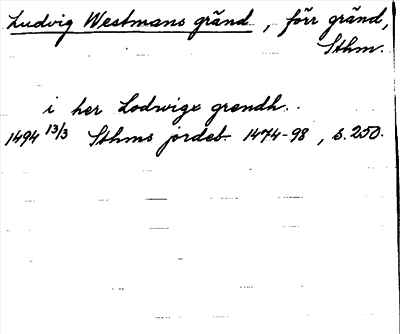 Ludvig Westmans gränd, förr gränd,
Sthm.
i her Lodwigx grendh..
1494 13/3 Sthms jordeb. 1474-98, s. 250.